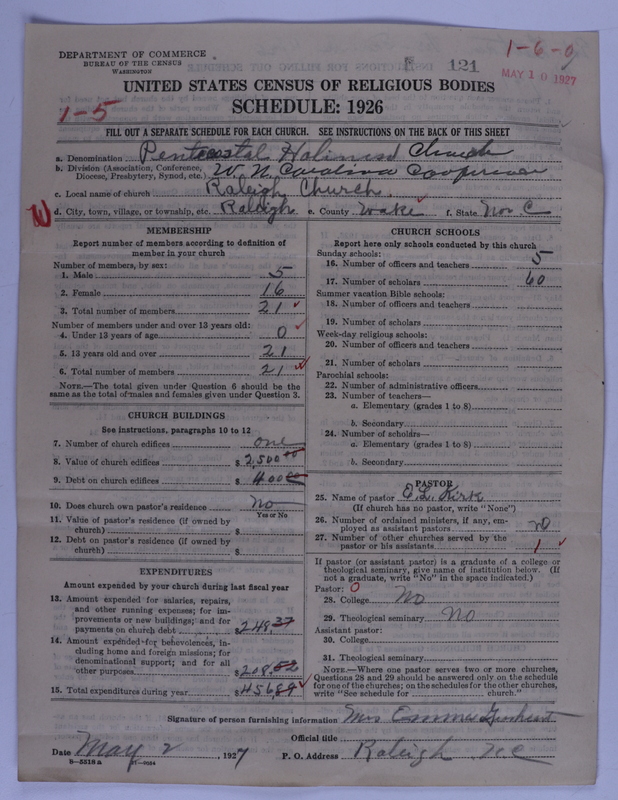 1-6-0
DEPARTMENT OF COMMERCE
BUREAU OF THE CENSUS
WASHINGTON
121
MAY 10 1927
UNITED STATES CENSUS OF RELIGIOUS BODIES
1-5
SCHEDULE: 1926
FILL OUT A SEPARATE SCHEDULE FOR EACH CHURCH. SEE INSTRUCTIONS ON THE BACK OF THIS SHEET
a. Denomination Pentecostal Holiness Church
b. Division (Association, Conference, Diocese, Presbytery, Synod, etc.) W N Carolina
c. Local name of church Raleigh Church
d. City, town, village, or township, etc. Raleigh e. County Wake f. State Nor. C
MEMBERSHIP
Report number of members according to definition of
member in your church
Number of members, by sex:
1. Male 5
2. Female 16
3. Total number of members 21
Number of members under and over 13 years old:
4. Under 13 years of age 0
5. 13 years old and over 21
6. Total number of members 21
NOTE.—The total given under Question 6 should be
same as the total of males and females given under Question 3.
CHURCH BUILDINGS
See instructions, paragraphs 10 to 12
7. Number of church edifices one
8. Value of church edifices $ 2,500.00
9. Debt on church edifices $ 400
10. Does church own pastor's residence No
Yes or No
11. Value of pastor's residence (if owned by
church) $
12. Debt on pastor's residence (if owned by
church) $
EXPENDITURES
Amount expended by your church during last fiscal year
13. Amount expended for salaries, repairs,
and other running expenses; for im-
provements or new buildings; and for
payments on church debt $ 248.37
14. Amount expended for benevolences, in-
cluding home and foreign missions; for
denominational support; and for all
other purposes $ 208.52
15. Total expenditures during year $ 456.89
CHURCH SCHOOLS
Report here only schools conducted by this church
Sunday schools:
16. Number of officers and teachers 5
17. Number of scholars 60
Summer vacation Bible schools:
18. Number of officers and teachers
19. Number of scholars
Week-day religious schools:
20. Number of officers and teachers
21. Number of scholars
Parochial schools:
22. Number of administrative officers
23. Number of teachers—
a. Elementary (grades 1 to 8)
b. Secondary
24. Number of scholars—
a. Elementary (grades 1 to 8)
b. Secondary
PASTOR
25. Name of pastor Kirk
(If church has no pastor, write "None")
26. Number of ordained ministers, if any, em-
ployed as assistant pastors no
27. Number of other churches served by the
pastor or his assistants 1
If pastor (or assistant pastor) is a graduate of a college or
theological seminary, give name of institution below. (If
not a graduate, write "No" in the space indicated.)
Pastor: 0
28. College No
29. Theological seminary No
Assistant pastor:
30. College
31. Theological seminary
NOTE.—Where one pastor serves two or more churches,
Questions 28 and 29 should be answered only on the schedule
for one of the churches; on the schedules for the other churches,
write "See schedule for church."
Signature of person furnishing information Mrs Emma
Official title
Date May 2, 1927 P. O. Address Raleigh NC